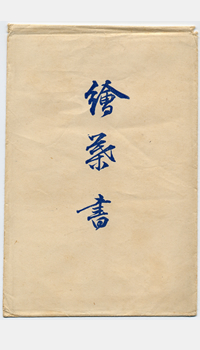 繪葉書